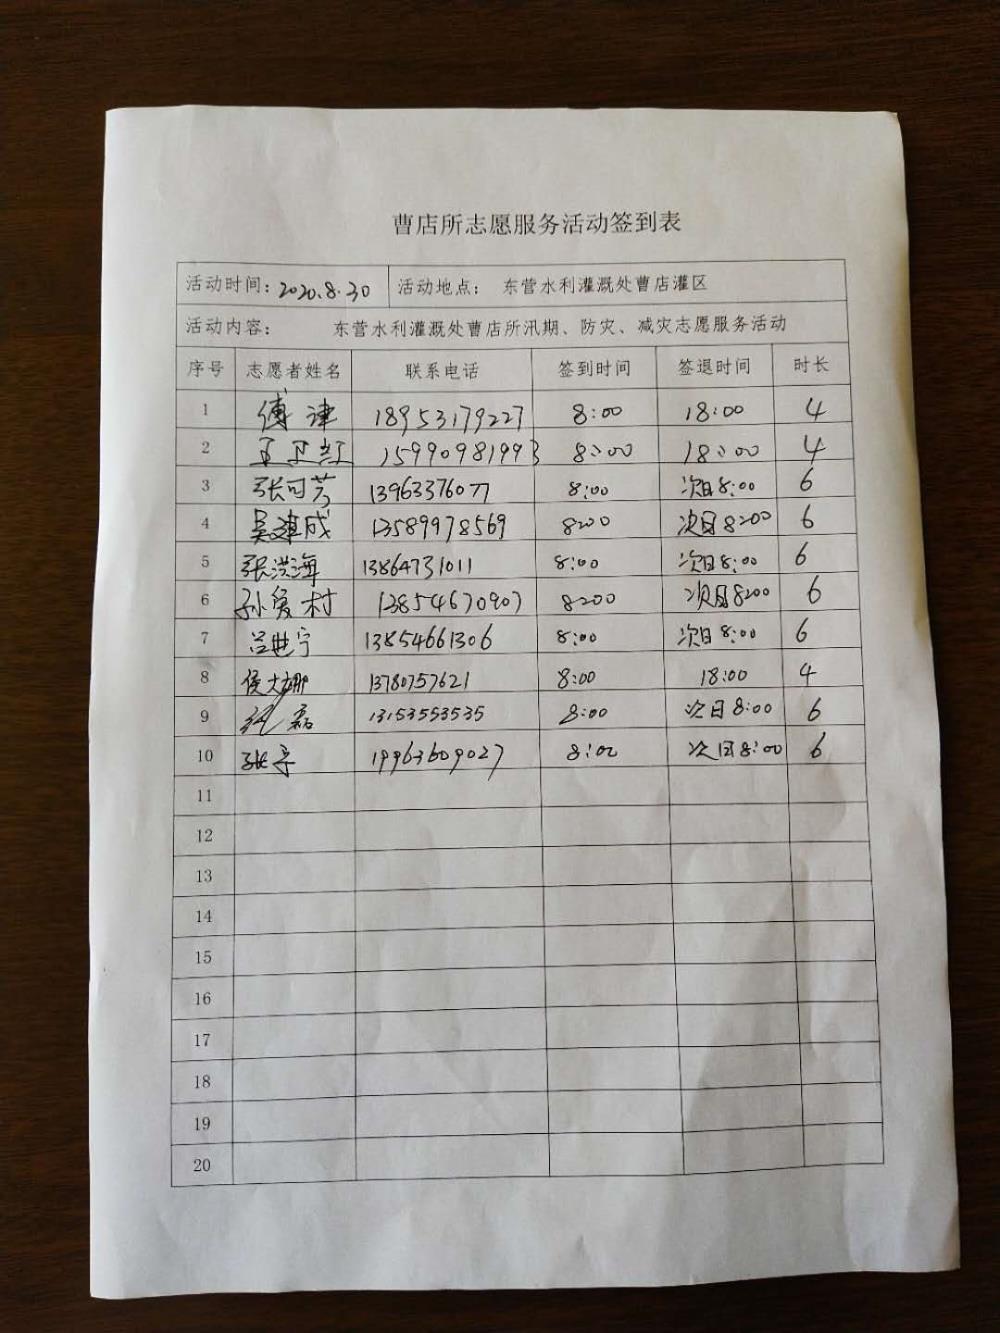 曹店所志愿服务活动签到表
活动时间: 2020.8.30 活动地点: 东营水利灌溉处曹店灌区
活动内容: 东营水利灌溉处曹店所汛期、防灾、减灾志愿服务活动
序号 志愿者姓名 联系电话 签到时间 签退时间 时长
1 傅津 18953179227 8:00 18:00 4
2 王卫红 15990981993 8:00 18:00 4
3 张可芳 13963376077 8:00 次日8:00 6
4 吴建成 13589978569 8:00 次日8:00 6
5 张洪海 13864731011 8:00 次日8:00 6
6 孙爱村 13854670907 8:00 次日8:00 6
7 吕世宁 13854661306 8:00 次日8:00 6
8 侯大娜 13780757621 8:00 18:00 4
9 磊 13153553535 8:00 次日8:00 6
10 张 19963609027 8:00 次日8:00 6
11
12
13
14
15
16
17
18
19
20